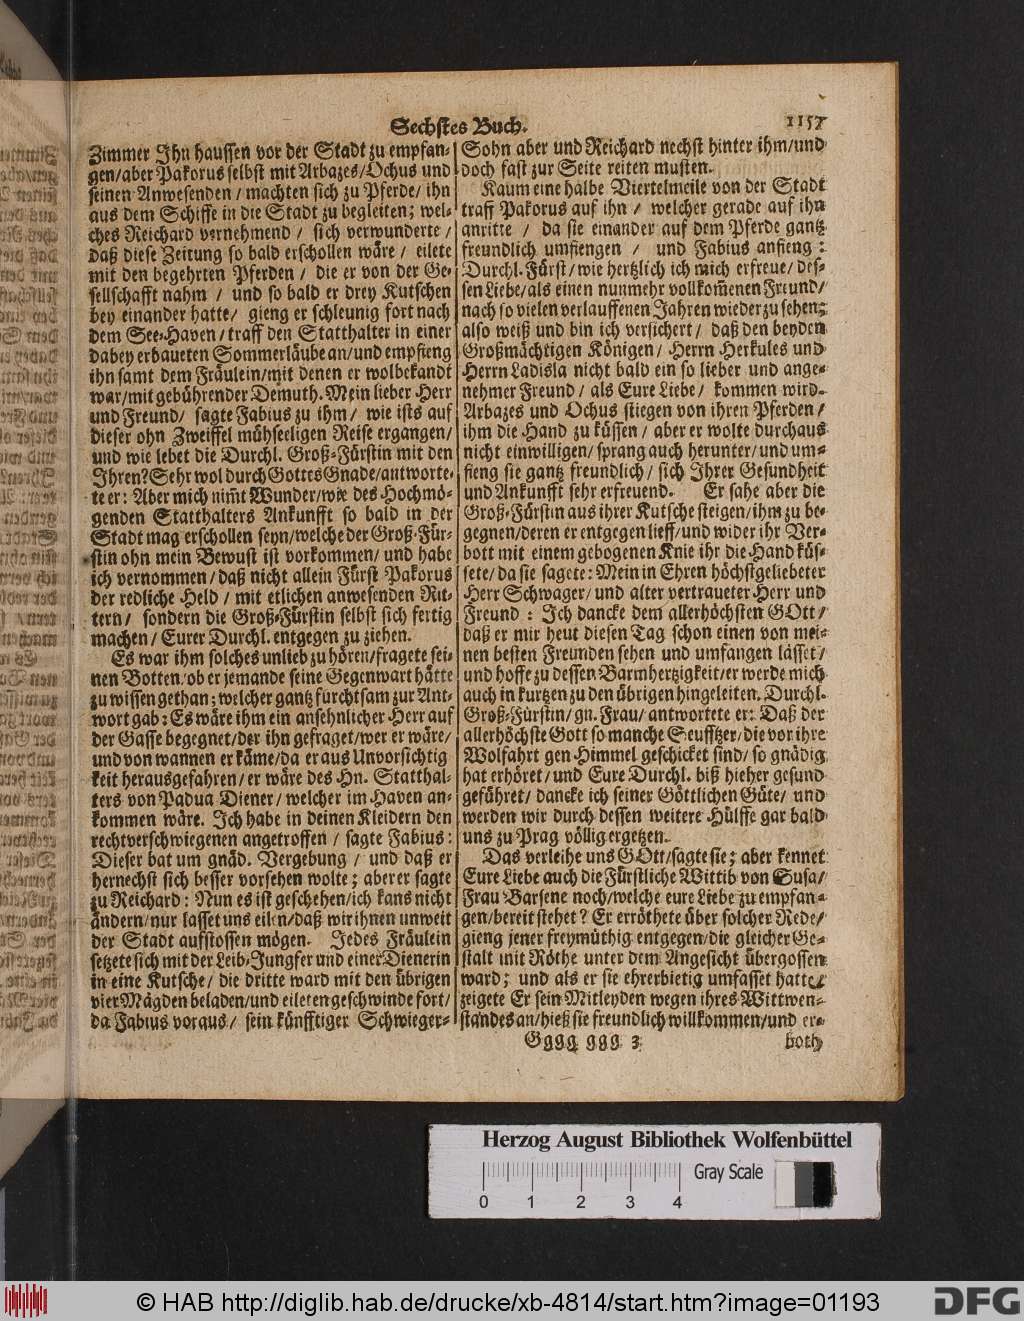 Sechstes Buch.
1157
Zimmer Ihn haussen vor der Stadt zu empfan-
gen/aber Pakorus selbst mit Arbazes/Ochus und
seinen Anwesenden/ machten sich zu Pferde/ ihn
aus dem Schiffe in die Stadt zu begleiten; wel-
ches Reichard vernehmend/ sich verwunderte/
daß diese Zeitung so bald erschollen wäre/ eilete
mit den begehrten Pferden/ die er von der Ge-
sellschafft nahm/ und so bald er drey Kutschen
bey einander hatte/ gieng er schleunig fort nach
dem See-Haven/traff den Statthalter in einer
dabey erbaueten Sommerläube an/und empfieng
ihn samt dem Fräulein/mit denen er wolbekandt
war/mit gebührender Demuth. Mein lieber Herr
und Freund/ sagte Fabius zu ihm/ wie ists auf
dieser ohn Zweiffel mühseeligen Reise ergangen/
und wie lebet die Durchl. Groß-Fürstin mit den
Ihren? Sehr wol durch Gottes Gnade/antworte-
te er: Aber mich nim̃t Wunder/wie des Hochmö-
genden Statthalters Ankunfft so bald in der
Stadt mag erschollen seyn/welche der Groß-Für-
stin ohn mein Bewust ist vorkommen/ und habe
ich vernommen/daß nicht allein Fürst Pakorus
der redliche Held/ mit etlichen anwesenden Rit-
tern/ sondern die Groß-Fürstin selbst sich fertig
machen/ Eurer Durchl. entgegen zu ziehen.
Es war ihm solches unlieb zu hören/fragete sei-
nen Botten/ob er jemande seine Gegenwart hätte
zu wissen gethan; welcher gantz furchtsam zur Ant-
wort gab: Es wäre ihm ein ansehnlicher Herr auf
der Gasse begegnet/der ihn gefraget/wer er wäre/
und von wannen er käme/da er aus Unvorsichtig
keit herausgefahren/er wäre des Hn. Statthal-
ters von Padua Diener/welcher im Haven an-
kommen wäre. Ich habe in deinen Kleidern den
rechtverschwiegenen angetroffen/ sagte Fabius:
Dieser bat um gnäd. Vergebung/ und daß er
hernechst sich besser vorsehen wolte; aber er sagte
zu Reichard: Nun es ist geschehen/ich kans nicht
ändern/nur lasset uns eilen/daß wir ihnen unweit
der Stadt aufstossen mögen. Jedes Fräulein
setzete sich mit der Leib-Jungfer und einer Dienerin
in eine Kutsche/ die dritte ward mit den übrigen
vier Mägden beladen/und eileten geschwinde fort/
da Fabius voraus/ sein künfftiger Schwieger-
Sohn aber und Reichard nechst hinter ihm/und
doch fast zur Seite reiten musten.
Kaum eine halbe Viertelmeile von der Stadt
traff Pakorus auf ihn/ welcher gerade auf ihn
anritte/ da sie einander auf dem Pferde gantz
freundlich umfiengen/ und Fabius anfieng:
Durchl. Fürst/wie hertzlich ich mich erfreue/des-
sen Liebe/als einen nunmehr vollkom̃enen Freund/
nach so vielen verlauffenen Jahren wieder zu sehen;
also weiß und bin ich versichert/ daß den beyden
Großmächtigen Königen/ Herrn Herkules und
Herrn Ladisla nicht bald ein so lieber und ange-
nehmer Freund/ als Eure Liebe/ kommen wird.
Arbazes und Ochus stiegen von ihren Pferden/
ihm die Hand zu küssen/aber er wolte durchaus
nicht einwilligen/sprang auch herunter/und um-
fieng sie gantz freundlich/sich Ihrer Gesundheit
und Ankunfft sehr erfreuend. Er sahe aber die
Groß-Fürstin aus ihrer Kutsche steigen/ihm zu be-
gegnen/deren er entgegen lieff/und wider ihr Ver-
bott mit einem gebogenen Knie ihr die Hand küs-
sete/da sie sagete: Mein in Ehren höchstgeliebeter
Herr Schwager/und alter vertraueter Herr und
Freund: Ich dancke dem allerhöchsten GOtt/
daß er mir heut diesen Tag schon einen von mei-
nen besten Freunden sehen und umfangen lässet/
und hoffe zu dessen Barmhertzigkeit/er werde mich
auch in kurtzen zu den übrigen hingeleiten. Durchl.
Groß-Fürstin/gn. Frau/antwortete er: Daß der
allerhöchste Gott so manche Seufftzer/die vor ihre
Wolfahrt gen Himmel geschicket sind/so gnädig
hat erhöret/und Eure Durchl. biß hieher gesund
geführet/dancke ich seiner Göttlichen Güte/ und
werden wir durch dessen weitere Hülffe gar bald
uns zu Prag völlig ergetzen.
Das verleihe uns GOtt/sagte sie; aber kennet
Eure Liebe auch die Fürstliche Wittib von Susa/
Frau Barsene noch/welche eure Liebe zu empfan-
gen/bereit stehet? Er erröthete über solcher Rede/
gieng jener freymüthig entgegen/die gleicher Ge-
stalt mit Röthe unter dem Angesicht übergossen
ward; und als er sie ehrerbietig umfasset hatte/
zeigete Er sein Mitleyden wegen ihres Wittwen-
standes an/hieß sie freundlich willkommen/und er-
Gggg ggg 3
both
Herzog August Bibliothek Wolfenbüttel
Gray Scale
0 1 2 3 4
© HAB http://diglib.hab.de/drucke/xb-4814/start.htm?image=01193
DFG